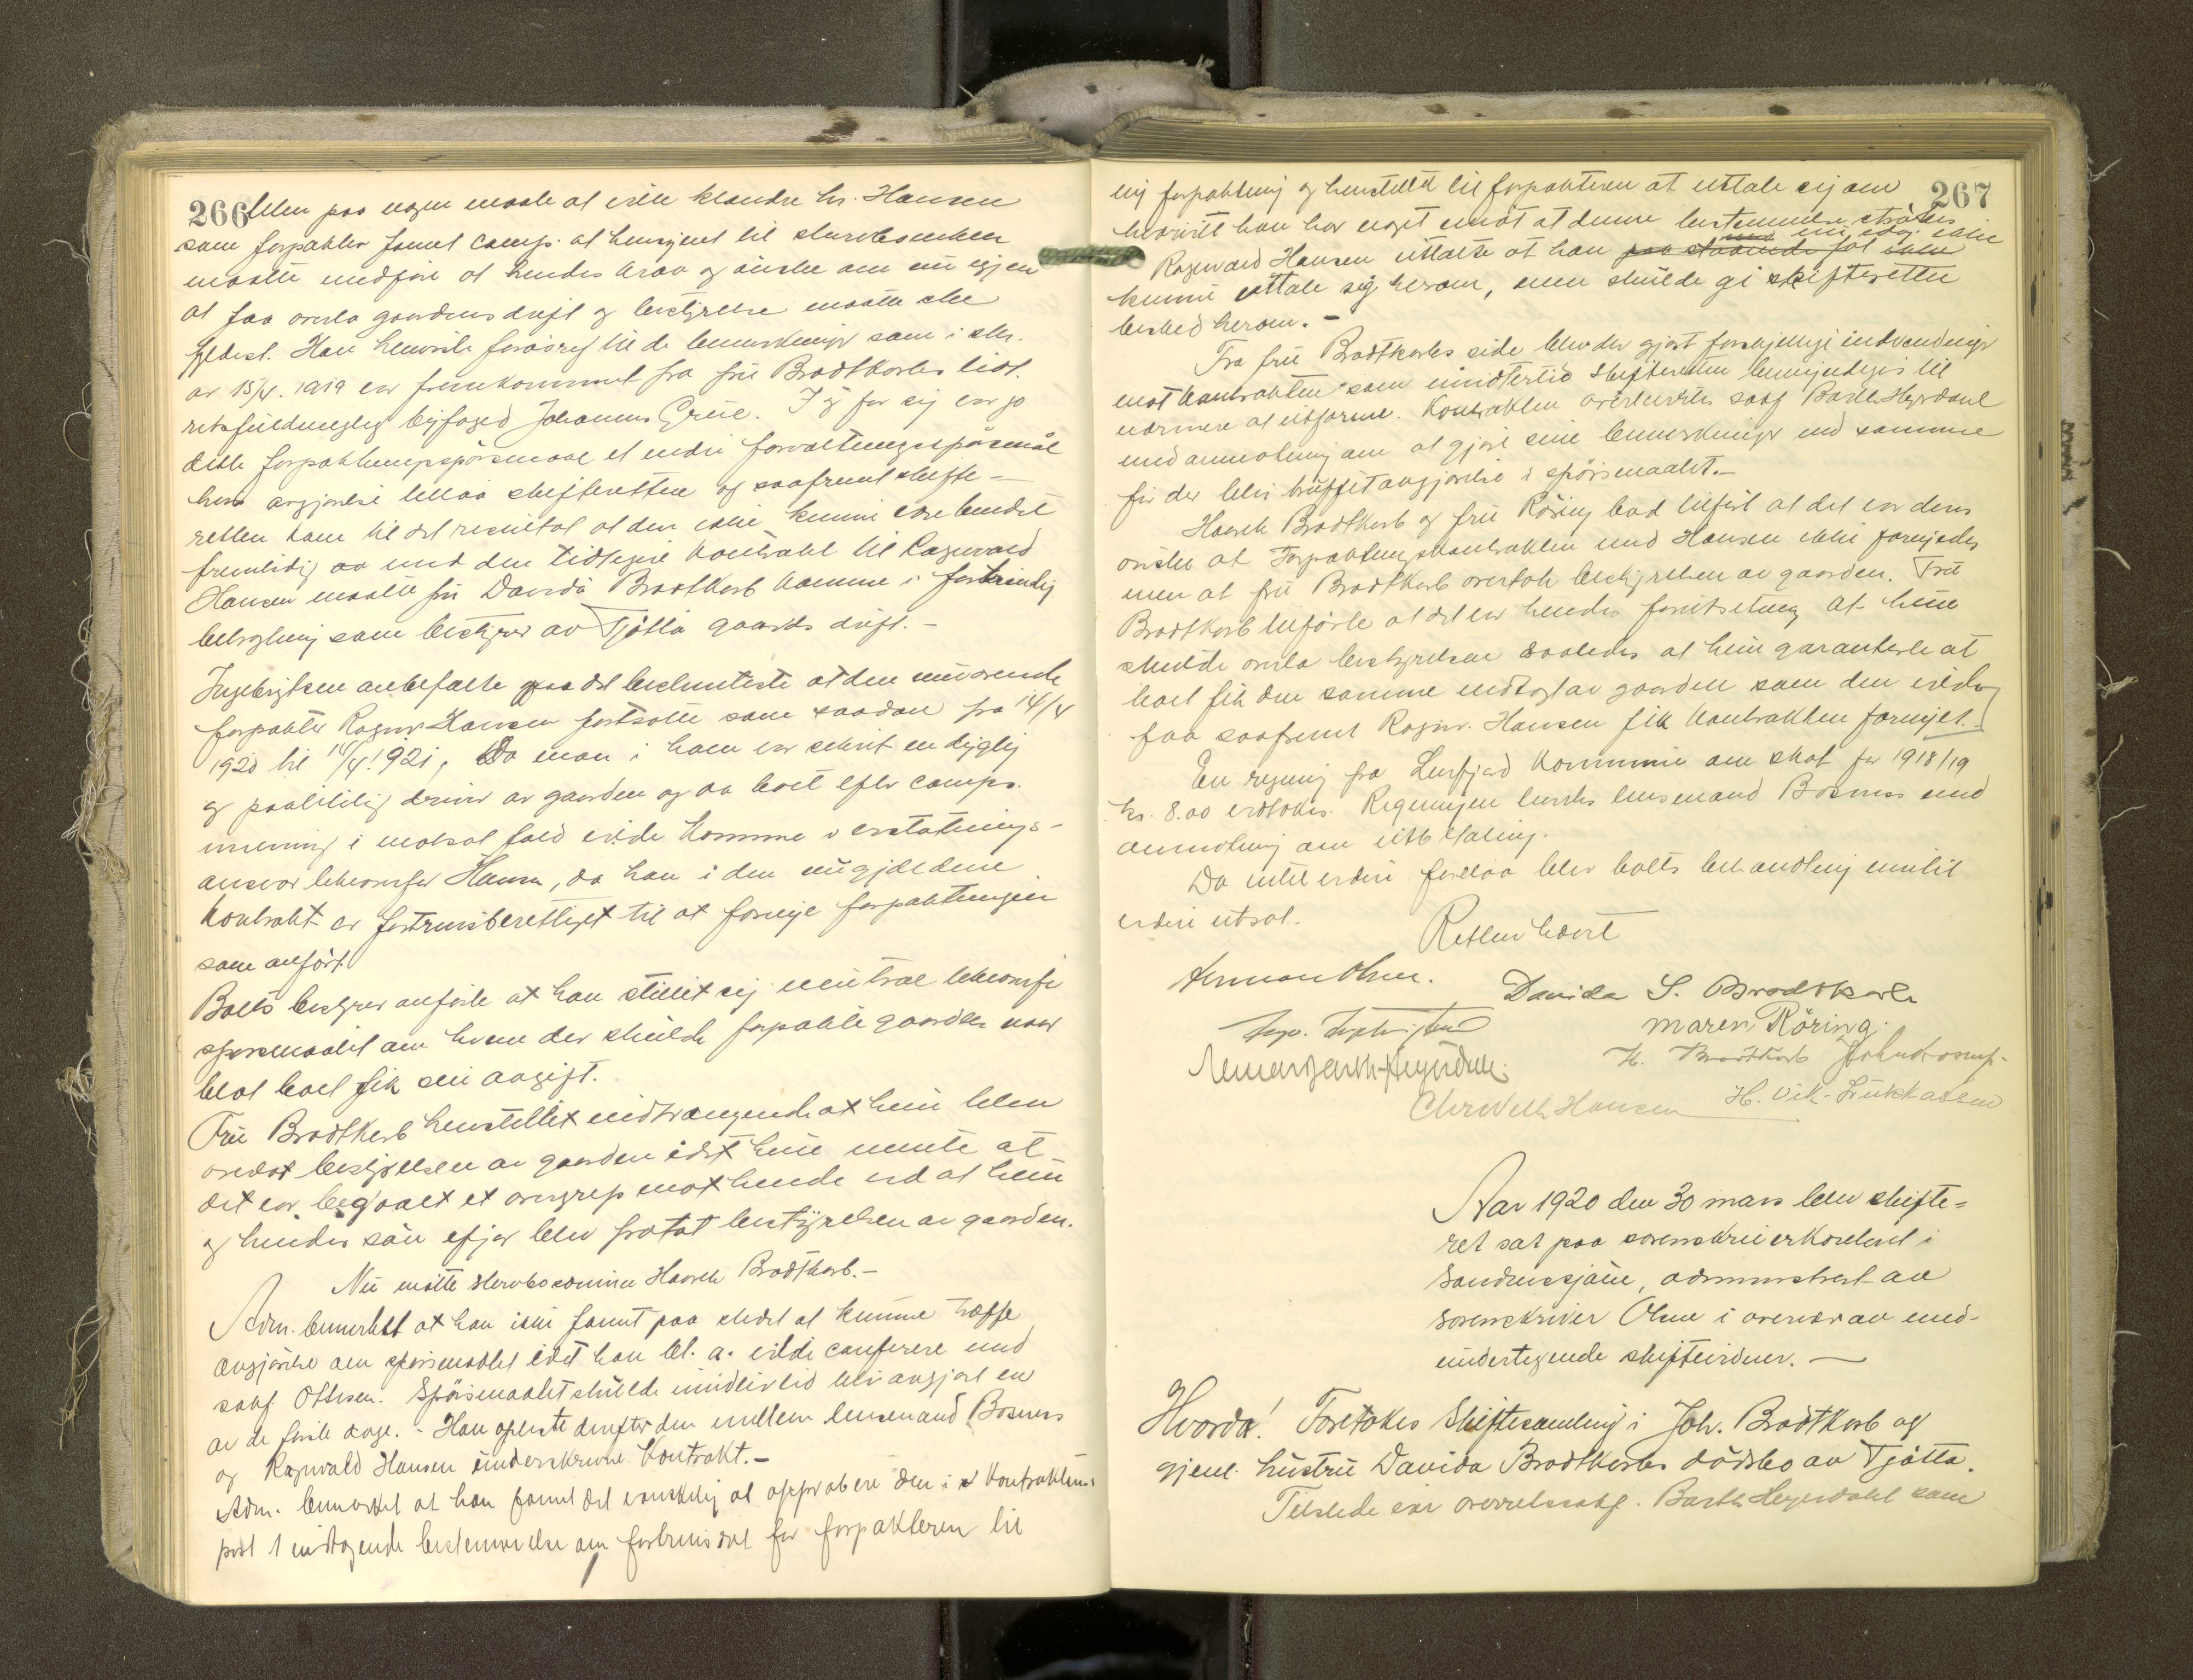 266
Uten paa nogen maate at ville klandre hr. Hansen
som forpakter fandt comp. at hensynet til sterboenken
maatte medføre at hendes krav og ønske om nu igjen
at faa overta gaardens drift og bestyrelse maatte ske
fyldest. Han henviste forøvrig til de bemerkninger som i skr.
av 15/4. 1919 er fremkommet fra fru Brodtkorbs tidl.
retsfuldmegtig byfoged Johannes Grüe. I og for sig var jo
dette forpaktningsspørsmaal et indre forvaltningsspørsmål
hvis avgjørelse tillaa skifteretten og saafremt skifte-
retten kom til det resultat at den ikke kunne være bundet
fremtidig av med den tidligere kontrakt til Ragnvald
Hansen maatte fru Davida Brodtkorb komme i fortrinlig
betragtning som bestyrer av Tjøtta gaards drift. -
Ingebrigtsen anbefalte paa det bestemteste at den nuværende
forpakter Ragnv. Hansen fortsatte som saadan fra 14/4
1920 til 14/4. 1921, Da man i ham var sikret en dygtig
og paalitelig driver av gaarden og da boet efter comps.
mening i motsat fald vilde komme i erstatnings-
ansvar likeoverfor Hansen, da han i den nugjældende
kontrakt er fortrinsberettiget til at fornye forpaktningen
som anført.
Boets bestyrer anførte at han stillet sig neutral likeoverfor
spørsmaalet om hvem der skulde forpakte gaarden naar
blot boet fik sin avgift.
Fru Brodtkorb henstillet indtrængende at hun blev
overdrat bestyrelsen av gaarden idet hun mente at
det var begaaet et overgrep mot hende ved at hun
og hendes søn ifjor blev fratat bestyrelsen av gaarden.
Nu møtte sterbosønnen Haarek Brodtkorb. -
Adm. bemerket at han ikke fandt paa stedet at kunne træffe
avgjørelse om spørsmaalet idet han bl. a. vilde conferere med
sakf. Ottesen. Spørsmaalet skulde imidlertid bli avgjort en
av de første dage. - Han oplæste derefter den mellem lensmand Bosness
og Ragnvald Hansen underskrevne kontrakt. -
Adm. bemerket at han fandt det vanskelig at approbere den i kontraktens
post 1 indtagende bestemmelse om fortrinsret for forpakteren til
267
ny forpaktning og henstillet til forpakteren at uttale sig om
hvorvidt han har noget imot at denne bestemmelse strøkes
Ragnvald Hansen uttalte at han paa staaende fot ikke
nu idag ikke
kunne uttale sig herom, men skulde gi skifteretten
besked herom. -
Fra fru Brodtkorbs side blev der gjort forskjellige indvendinger
mot kontrakten som imidlertid skifteretten bemyndiges til
nærmere at utforme. Kontrakten overleveres sakf. Barth Heyerdahl
med anmodning om at gjøre sine bemerkninger ved samme
før der blir truffet avgjørelse i spørsmaalet. -
Haarek Brodtkorb og fru Röring bad tilført at det var deres
ønske at Forpaktningskontrakten med Hansen ikke fornyedes
men at fru Brodtkorb overtok bestyrelsen av gaarden. Fru
Brodtkorb tilførte at det var hendes forutsetning at hun
skulde overta bestyrelsen saaledes at hun garanterte at
boet fik den samme indtægt av gaarden som den vilde
faa saafremt Ragnv. Hansen fik kontrakten fornyet.
En regning fra Leirfjord kommune om skat for 1918/19
kr. 8.00 vedtokes. Regningen leveres lensmand Bosness med
anmodning om utbetaling.
Da intet videre forelaa blev boets behandling indtil
videre utsat.
Retten hævet
Herman Olsen.
Davida S. Brodtkorb
Maren Röring.
H. Brodtkorb
Chr Weth Hansen
Aar 1920 den 30 mars blev skifte-
ret sat paa sorenskriverkontoret i
Sandnessjøen, administrert av
sorenskriver Olsen i overvær av med-
undertegnede skiftevidner. -
Hvorda! Foretokes Skiftesamling i Joh. Brodtkorb og
gjenl. hustru Davida Brodtkorbs dødsbo av Tjøtta.
Tilstede var overretssakf. Barth Heyerdahl som